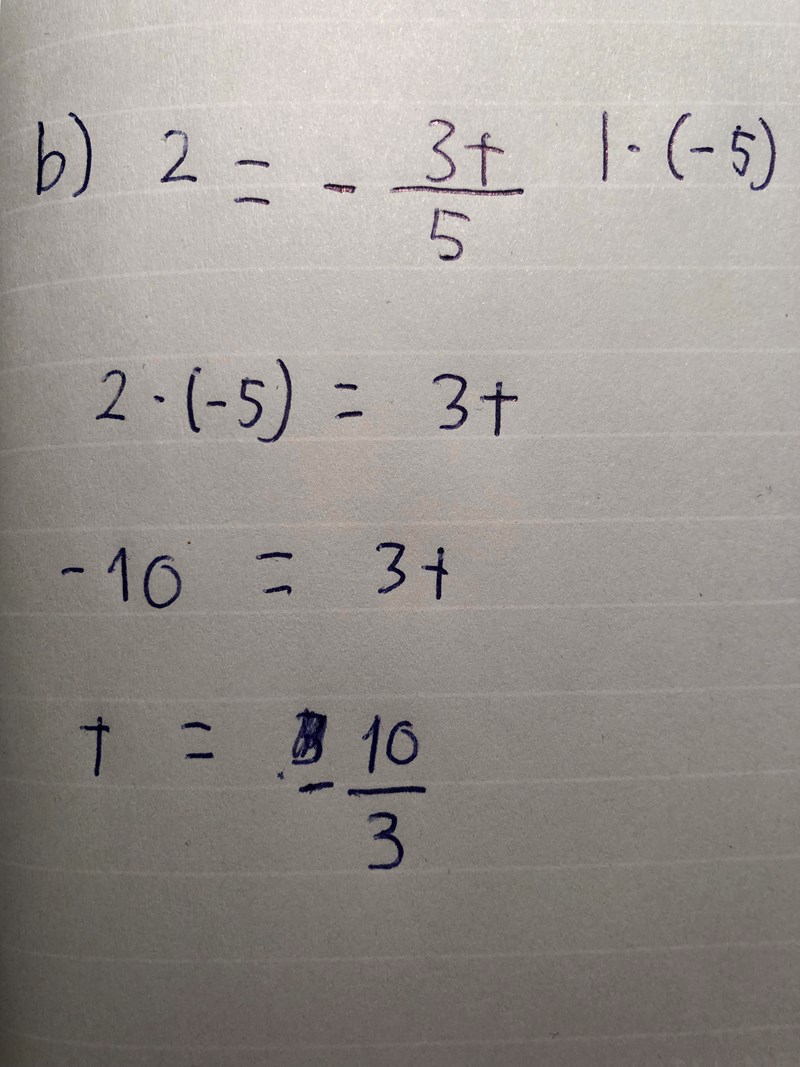 b) 2 = - 3t/5 |·(-5)
2·(-5) = 3t
-10 = 3t
t = - 10/3